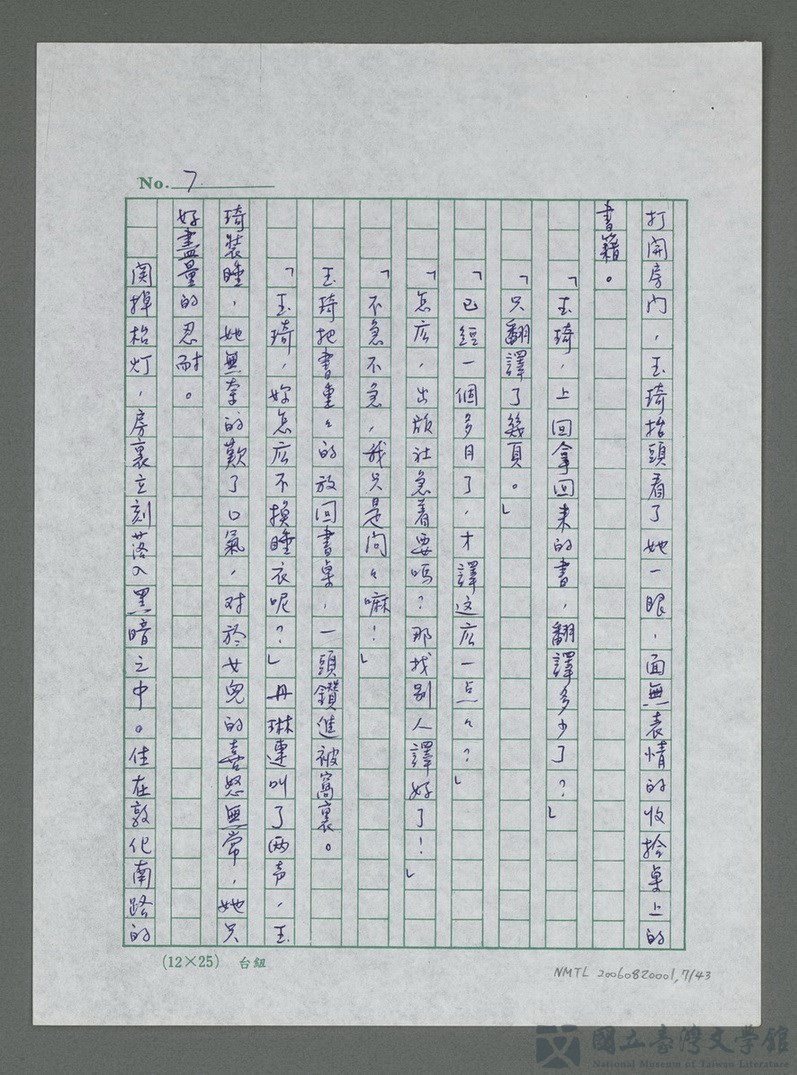 No. 7
打開房门，玉琦抬頭看了她一眼，面無表情的收拾桌上的
書籍。
「玉琦，上回拿回来的書，翻譯多少了？」
「只翻譯了幾頁。」
「已經一個多月了，才譯这庅一点々？」
「怎庅，出版社急着要嗎？那找别人譯好了！」
「不急不急，我只是问々嘛！」
玉琦把書重々的放回書桌，一頭鑽進被窩裏。
「玉琦，妳怎庅不換睡衣呢？」丹琳連叫了两声，玉
琦裝睡，她無奈的歎了口氣，对於女兒的喜怒無常，她只
好盡量的忍耐。
関掉枱灯，房裏立刻落入黑暗之中。住在敦化南路的
(12×25) 台紐
NMTL 20060820001, 7/43
國立臺灣文学館
National Museum of Taiwan Literature